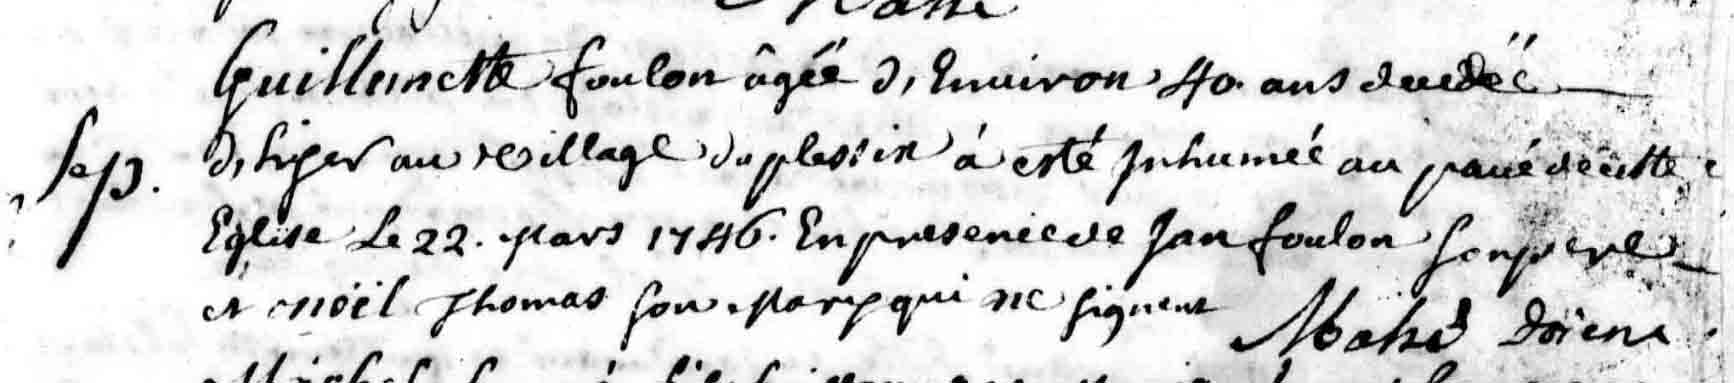 Mahé
Guillemette foulon âgée d'Environ 40. ans decedéé
Sep.
d'hyer au village du plessix á esté Inhuméé au pavé de cette
Eglise Le 22. Mars 1746. En presence de Jan foulon son pere
et nöël Thomas son Mary qui ne signent
Mahé doïen.